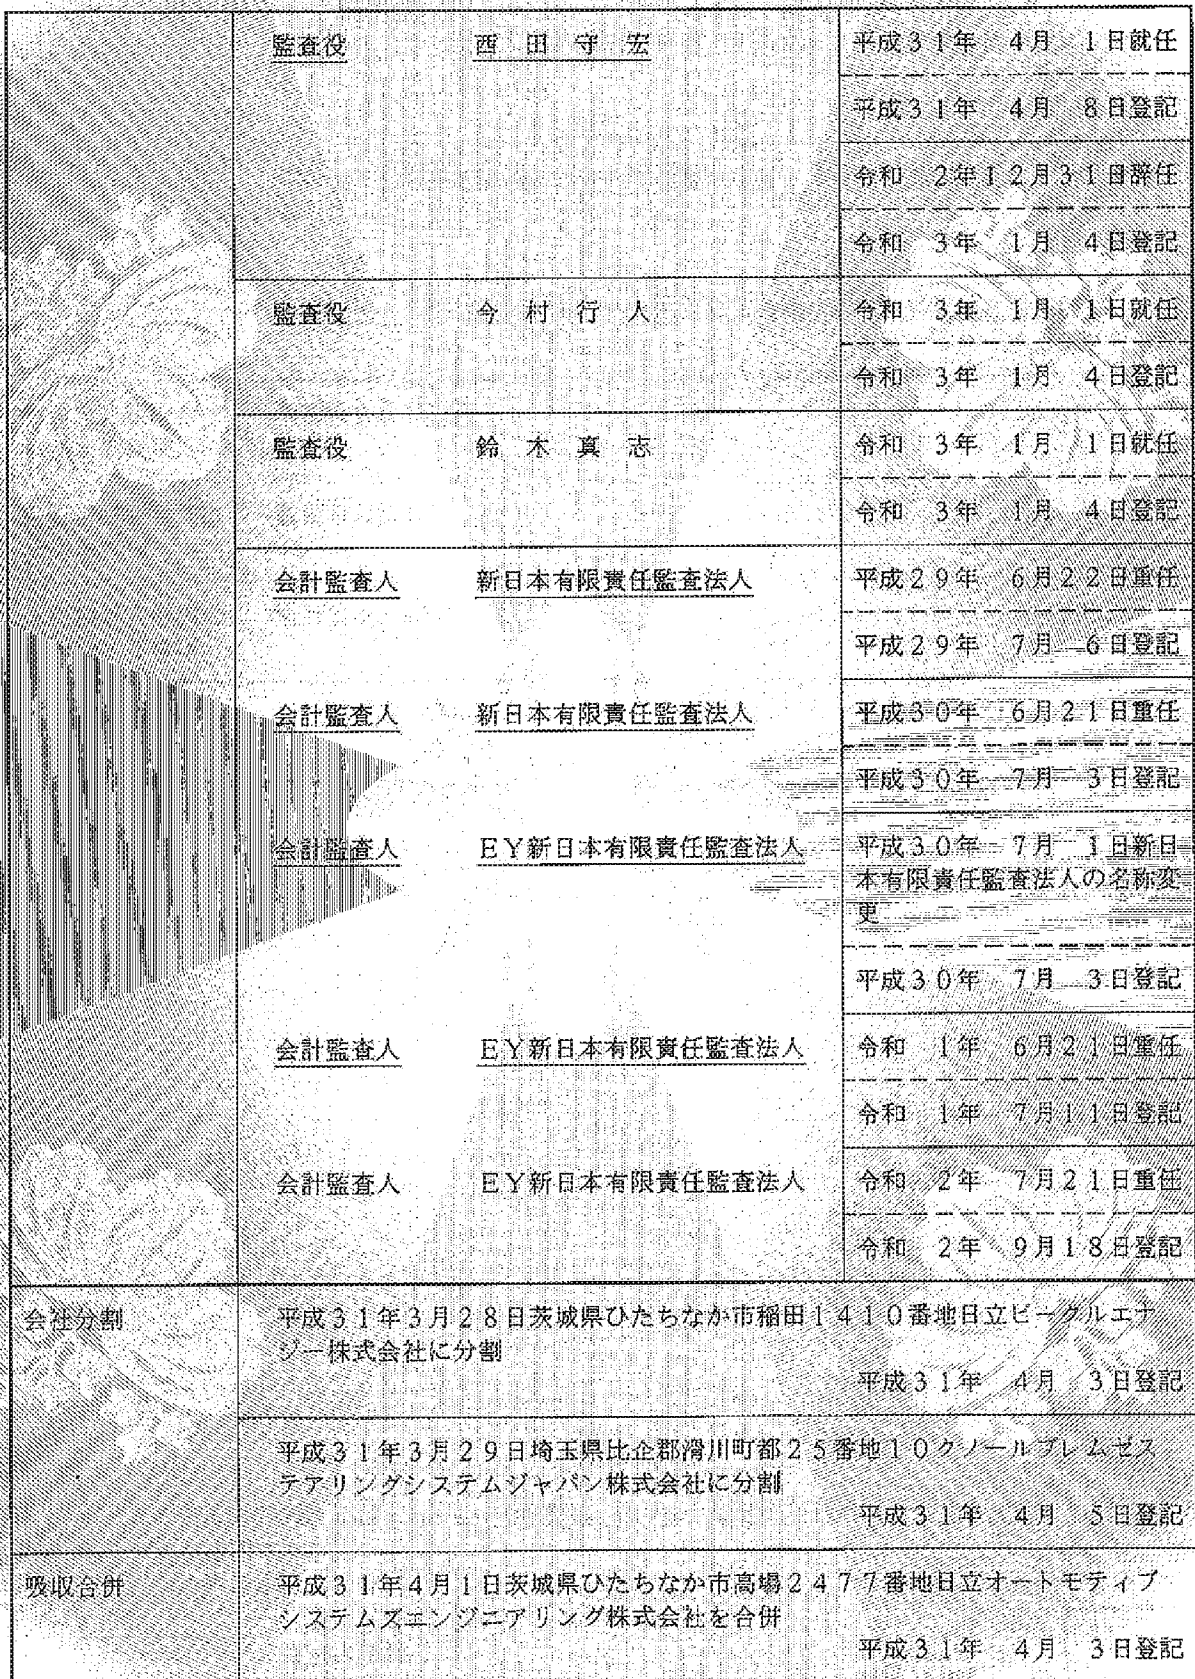 監査役 西田守宏 平成31年 4月 1日就任
平成31年 4月 8日登記
令和 2年12月31日辞任
令和 3年 1月 4日登記
監査役 今村行人 令和 3年 1月 1日就任
令和 3年 1月 4日登記
監査役 鈴木真志 令和 3年 1月 1日就任
令和 3年 1月 4日登記
会計監査人 新日本有限責任監査法人 平成29年 6月22日重任
平成29年 7月 6日登記
会計監査人 新日本有限責任監査法人 平成30年 6月21日重任
平成30年 7月 3日登記
会計監査人 EY新日本有限責任監査法人 平成30年 7月 1日新日
本有限責任監査法人の名称変
更
平成30年 7月 3日登記
会計監査人 EY新日本有限責任監査法人 令和 1年 6月21日重任
令和 1年 7月11日登記
会計監査人 EY新日本有限責任監査法人 令和 2年 7月21日重任
令和 2年 9月18日登記
会社分割 平成31年3月28日茨城県ひたちなか市稲田1410番地日立ビークルエナ
ジー株式会社に分割
平成31年 4月 3日登記
平成31年3月29日埼玉県比企郡滑川町都25番地10クノールブレムゼス
テアリングシステムジャパン株式会社に分割
平成31年 4月 5日登記
吸収合併 平成31年4月1日茨城県ひたちなか市高場2477番地日立オートモティブ
システムズエンジニアリング株式会社を合併
平成31年 4月 3日登記